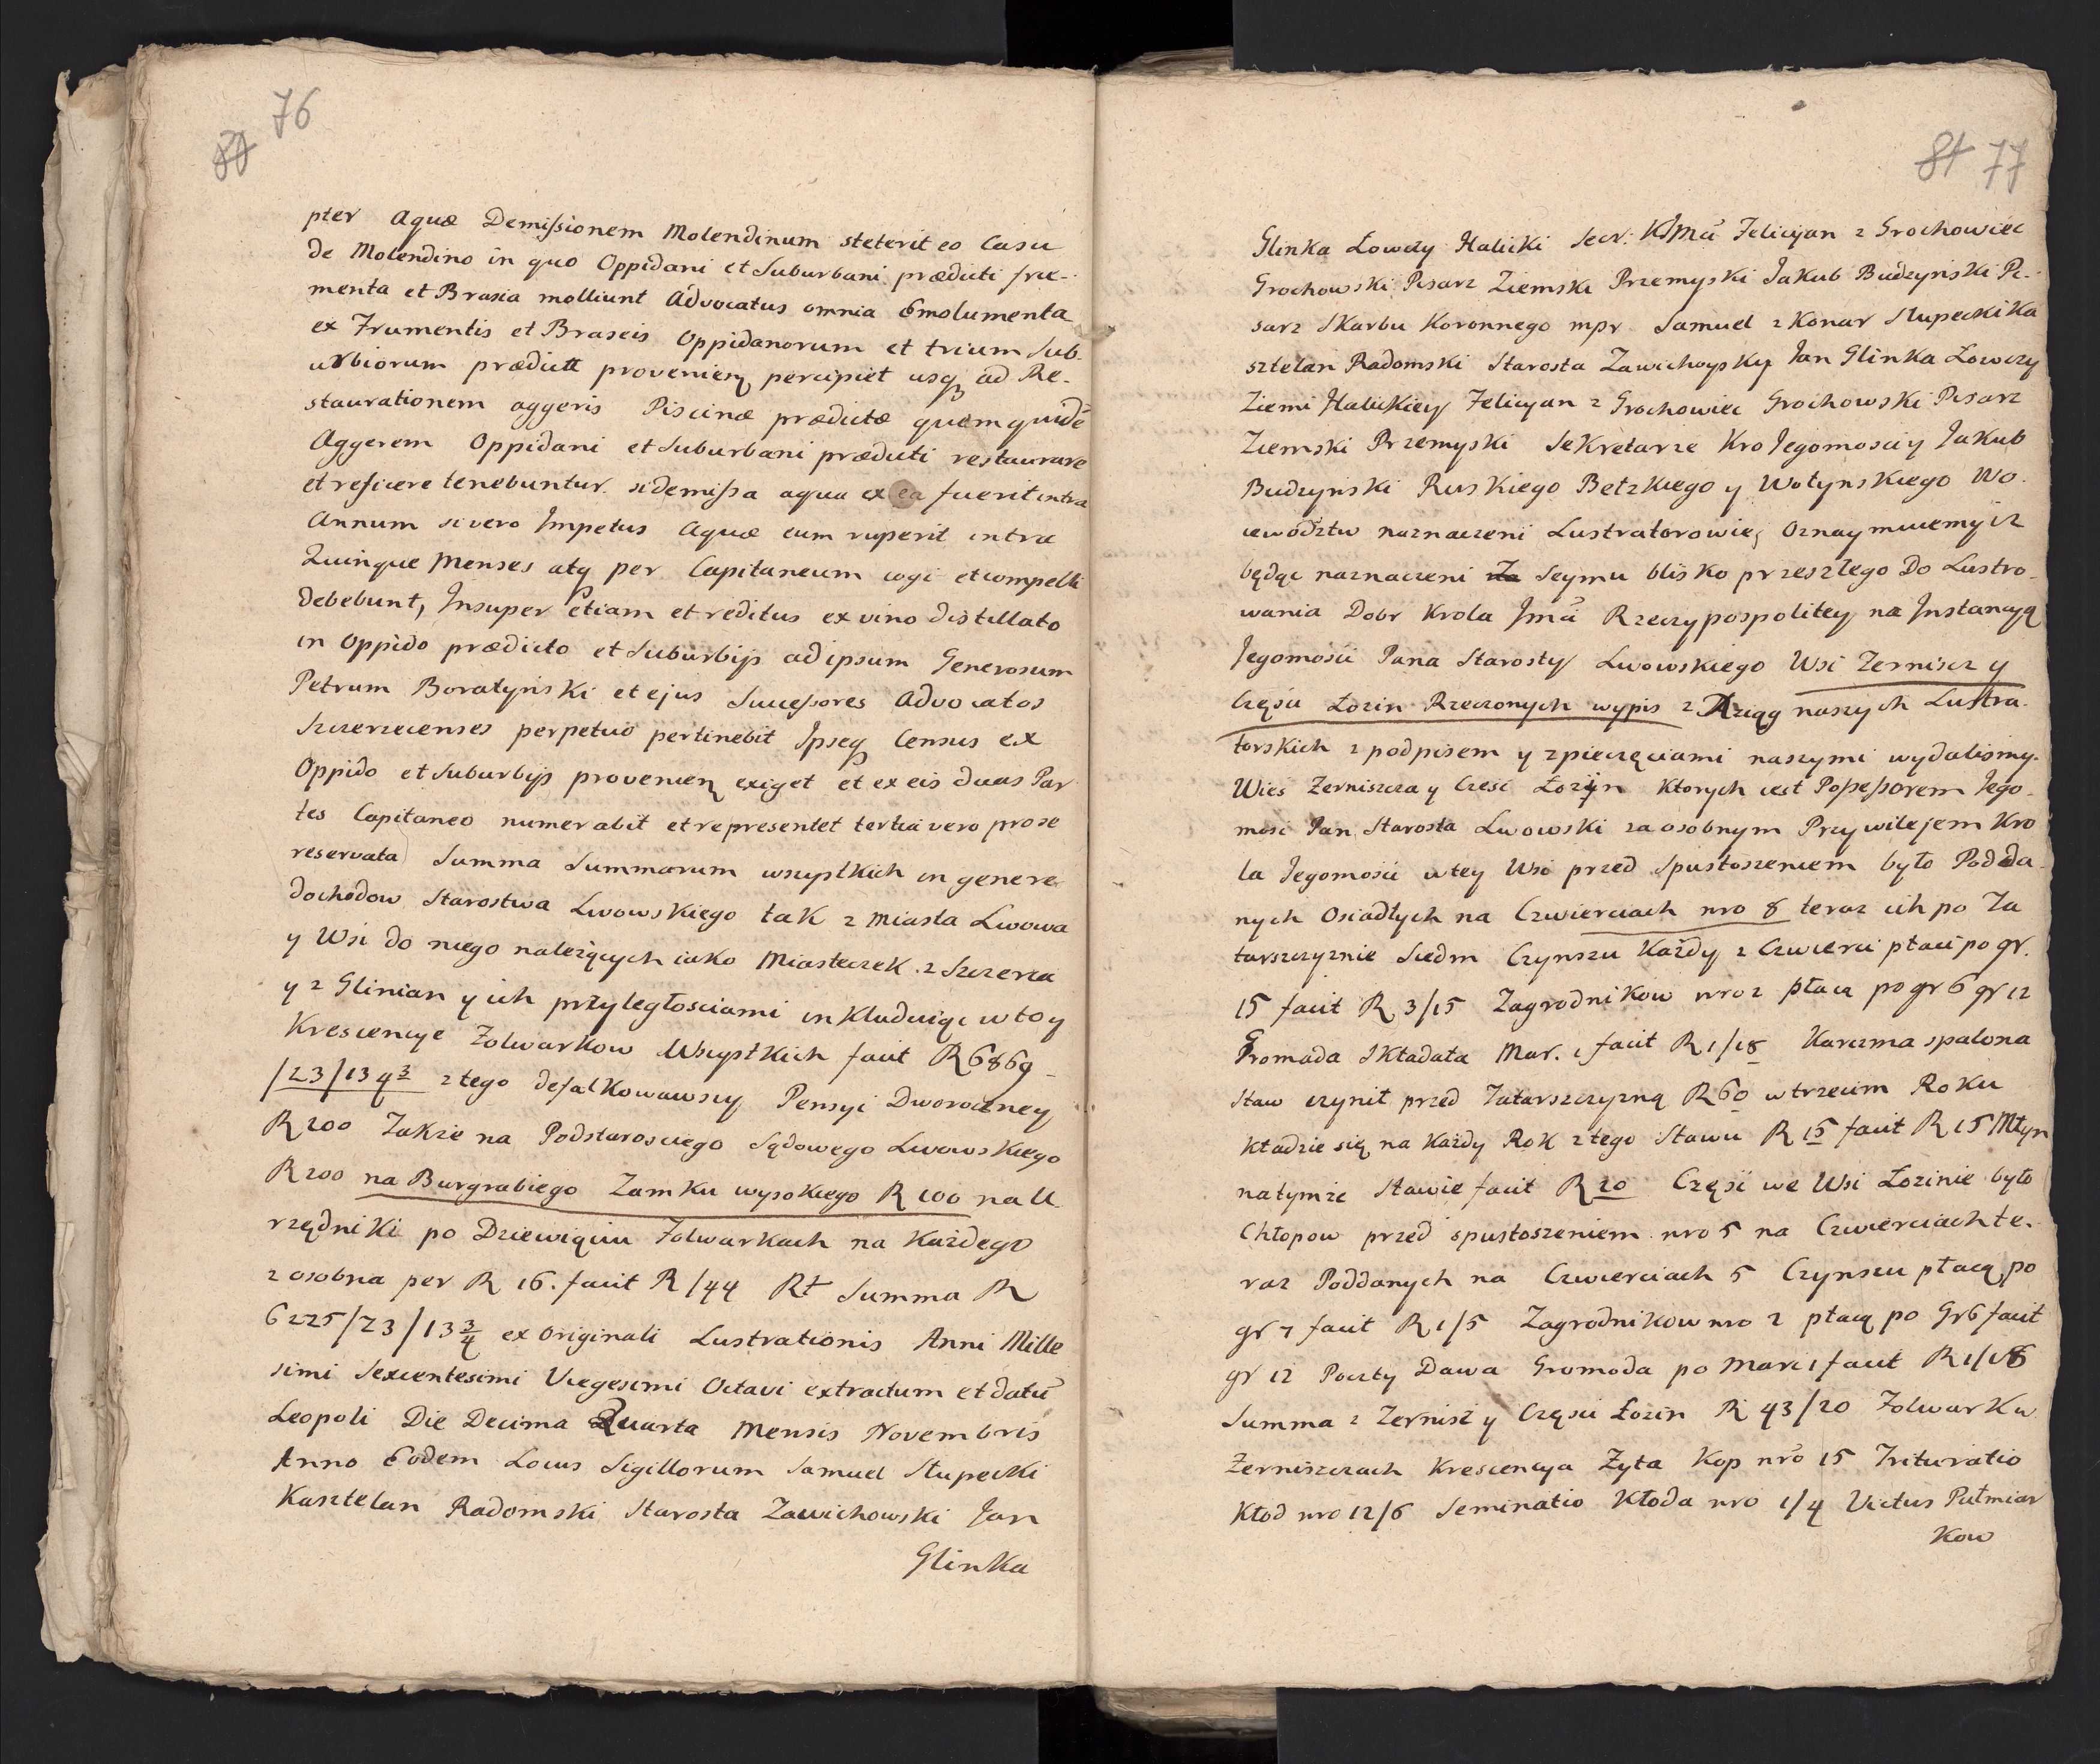 76
80
pter Aquæ Demissionem Molendinum steterit eo Casu
de Molendino in quo Oppidani et Suburbani prædicti fru-
menta et Brasia molliunt Advocatus omnia Emolumenta
ex Frumentis et Braseis Oppidanorum et trium Sub-
urbiorum prædictt provenien percipiet usq ad Re-
staurationem aggeris Piscinæ prædictæ quem quidē
Aggerem Oppidani et Suburbani prædicti restaurare
et reficere tenebuntur. si demissa aqua ex ea fuerit intra
Annum si vero Impetus Aquæ eum ruperit intra
Quinque Menses atq per Capitaneum cogi et compelli
debebunt, Insuper etiam et reditus ex vino distillato
in Oppido prædicto et Suburbijs ad ipsum Generosum
Petrum Boratynski et ejus Successores Advocatos
Szczerzecenses perpetuo pertinebit Ipseq Census ex
Oppido et Suburbijs provenien exiget et ex eis duas Par
tes Capitaneo numerabit et representet tertia vero pro se
reservata Summa Summarum wszystkich in genere
dochodow Starostwa Lwowskiego tak z Miasta Lwowa
y Wsi do niego należących iako Miasteczek z Szczerca
y z Glinian y ich przyległosciami inkludując w to y
Krescencye Folwarkow Wszystkich facit R 6869
/23/13 4 3 z tego defalkowawszy Pensyi Dworoczney
R 200 Takze na Podstarosciego Sądowego Lwowskiego
R 200 na Burgrabiego Zamku wysokiego R 100 na U
rzędniki po Dziewiąciu Folwarkach na Każdego
z osobna per R 16. facit R /44 Rt Summa R
6225/23/13 3/4 ex Originali Lustrationis Anni Mille
simi Sexcentesimi Vicegesimi Octavi extractum et datū
Leopoli Die Decima Quarta Mensis Novembris
Anno Eodem Locus Sigillorum Samuel Słupecki
Kasztelan Radomski Starosta Zawichowski Jan
Glinka
81 77
Glinka Łowczy Halicki Secr: KJMci Felicyan z Grochowiec
Grochowski Pisarz Ziemski Przemyski Jakub Budzynski Pi-
sarz Skarbu Koronnego mpr Samuel z Konar Słupecki Ka
sztelan Radomski Starosta Zawichoyski Jan Glinka Łowczy
Ziemi Halickiey Felicyan z Grochowiec Grochowski Pisarz
Ziemski Przemyski Sekretarze Kro Jegomosci y Jakub
Budzynski Ruskiego Bełzkiego y Wołynskiego Wo-
iewodztw naznaczeni Lustratorowie, Oznaymuiemy iz
będąc naznaczeni Seymu blisko przeszłego do Lustro-
wania Dobr Krola Jmci Rzeczypospolitey na Instancyą
Jegomosci Pana Starosty Lwowskiego Wsi Zernisz y
Częsci Łozin Rzeczonych wypis z Xciąg naszych Lustra-
torskich z podpisem y z pieczęciami naszymi wydalismy.
Wies Zerniszcza y Czesc Łozyn Ktorych iest Possessorem Jego-
mosc Pan Starosta Lwowski za osobnym Przywilejem Kro
la Jegomosci w tey Wsi przed Spustoszeniem było Podda-
nych Osiadłych na Czwierciach nro 8 teraz ich po Ta
tarszczyznie Siedm Czynszu Każdy z Czwierci płaci po gr.
15 facit R 3/15 Zagrodnikow nro 2 płacą po gr 6 gr 12
Gromada Składała Mar. 1 facit R 1/18 Karczma spalona
Staw czynił przed Tatarszczyzną R 60 w trzecim Roku
Kładzie się na Każdy Rok z tego Stawu R 15 facit R 15 Młyn
na tymże Stawie facit R 20 Częsci we Wsi Łozinie było
Chłopow przed spustoszeniem nro 5 na Czwierciach te-
raz Poddanych na Czwierciach 5 Czynszu płacą po
gr 7 facit R 1/5 Zagrodnikow nro 2 płacą po Gr 6 facit
gr 12 Poczty Dawa Gromada po Marc 1 facit R 1/18
Summa z Zernisz y Częsci Łozin R 43/20 Folwarku
Zerniszczach Krescencya Zyta Kop nrō 15 Trituratio
Kłod nro 12/6 Seminatio Kłoda nro 1/4 Victus Pułmiar
kow